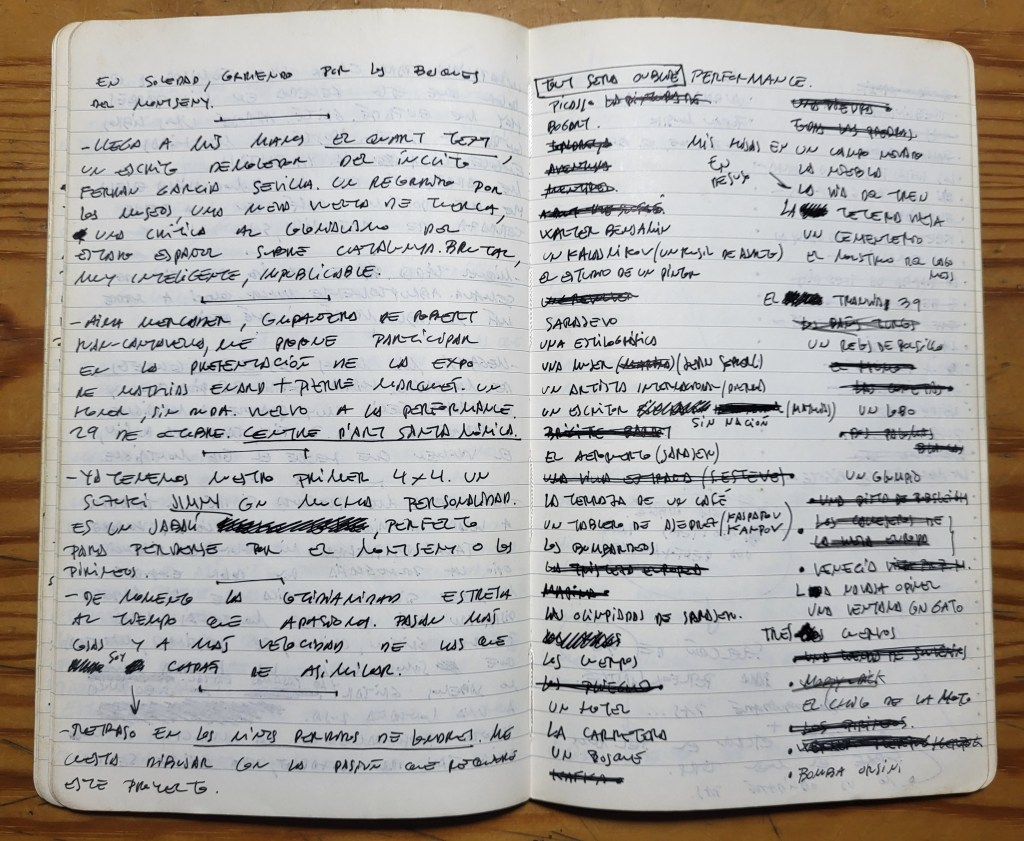 EN SOLEDAD, CORRIENDO POR LOS BOSQUES
DEL MONTSENY.
- LLEGA A MIS MANOS EL QUART TEXT,
UN ESCRITO DEMOLEDOR DEL ÍNCLITO
FERRAN GARCIA SEVILLA. UN RECORRIDO POR
LOS MUSEOS, UNA NUEVA VUELTA DE TUERCA,
UNA CRÍTICA AL COLONIALISMO DEL
ESTADO ESPAÑOL SOBRE CATALUNYA. BRUTAL,
MUY INTELIGENTE, IMPUBLICABLE.
- AINA MERCADER, COMPAÑERA DE ROBERT
JUAN-CANTAVELLA, ME PROPONE PARTICIPAR
EN LA PRESENTACIÓN DE LA EXPO
DE MATHIAS ENARD + PIERRE MARQUÈS. UN
HONOR, SIN DUDA. VUELVO A LA PERFORMANCE,
29 DE OCTUBRE. CENTRE D'ART SANTA MÒNICA.
- YA TENEMOS NUESTRO PRIMER 4x4. UN
SUZUKI JIMNY CON MUCHA PERSONALIDAD.
ES UN JABALÍ, PERFECTO
PARA PERDERSE POR EL MONTSENY O LOS
PIRINEOS.
- DE MOMENTO LA COTIDIANIDAD ESTRESA
AL TIEMPO QUE APASIONA. PASAN MÁS
COSAS Y A MÁS VELOCIDAD DE LAS QUE
SOY CAPAZ DE ASIMILAR.
- RETRASO EN LOS NIÑOS PERDIDOS DE LONDRES. ME
CUESTA DIBUJAR CON LA PASIÓN QUE REQUIERE
ESTE PROYECTO.
TOUT SERA OUBLIÉ PERFORMANCE.
PICASSO
BOGART.
AVENTURA
WALTER BENJAMIN
UN KALASNIKOV (UN FUSIL DE ASALTO)
EL ESTUDIO DE UN PINTOR
SARAJEVO
UNA ESTILOGRÁFICA
UNA MUJER (JEAN SEBERG)
UN ARTISTA INTERNACIONAL (PIERRE)
UN ESCRITOR SIN NACIÓN (MATHIAS)
EL AEROPUERTO (SARAJEVO)
LA TERRAZA DE UN CAFÉ
UN TABLERO DE AJEDREZ (KASPAROV KARPOV)
LOS BOMBARDEOS
LAS OLIMPIADAS DE SARAJEVO.
LOS CUERPOS
UN HOTEL
LA CARRETERA
UN BOSQUE
KAFKA
UNA PIEDRA
TODAS LAS PIEDRAS
MIS HIJAS EN UN CAMPO NEVADO
LA NIEBLA
EN DESUSO
LA VÍA DEL TREN
LA TETERA VIEJA
UN CEMENTERIO
EL MONSTRUO DEL LAGO
NESS
EL TRANVÍA 39
UN RELOJ DE BOLSILLO
UN LOBO
DOS PÁJAROS
• VENECIA
LA NAVAJA OPINEL
UNA VENTANA CON GATO
TRES CUERVOS
EL CASCO DE LA MOTO
• BOMBA ORSINI